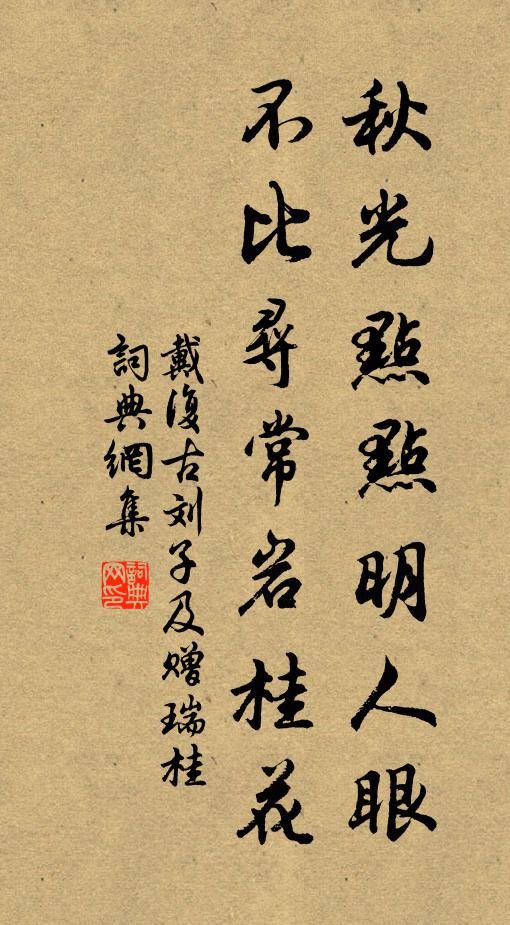 秋光點點明人眼
不比尋常岩桂花
戴復古刘子及赠瑞桂
詞典網集
詞典
网印